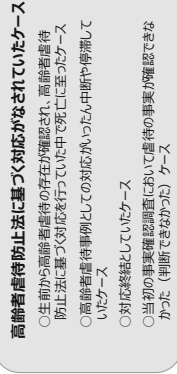 高齢者虐待防止法に基づく対応がなされていたケース
○生前から高齢者虐待の存在が確認され、高齢者虐待
防止法に基づく対応を行っていた中で死亡に至ったケース
○高齢者虐待事例としての対応がいったん中断や停滞して
いたケース
○対応終結としていたケース
○当初の事実確認調査において虐待の事実が確認できな
かった（判断できなかった）ケース